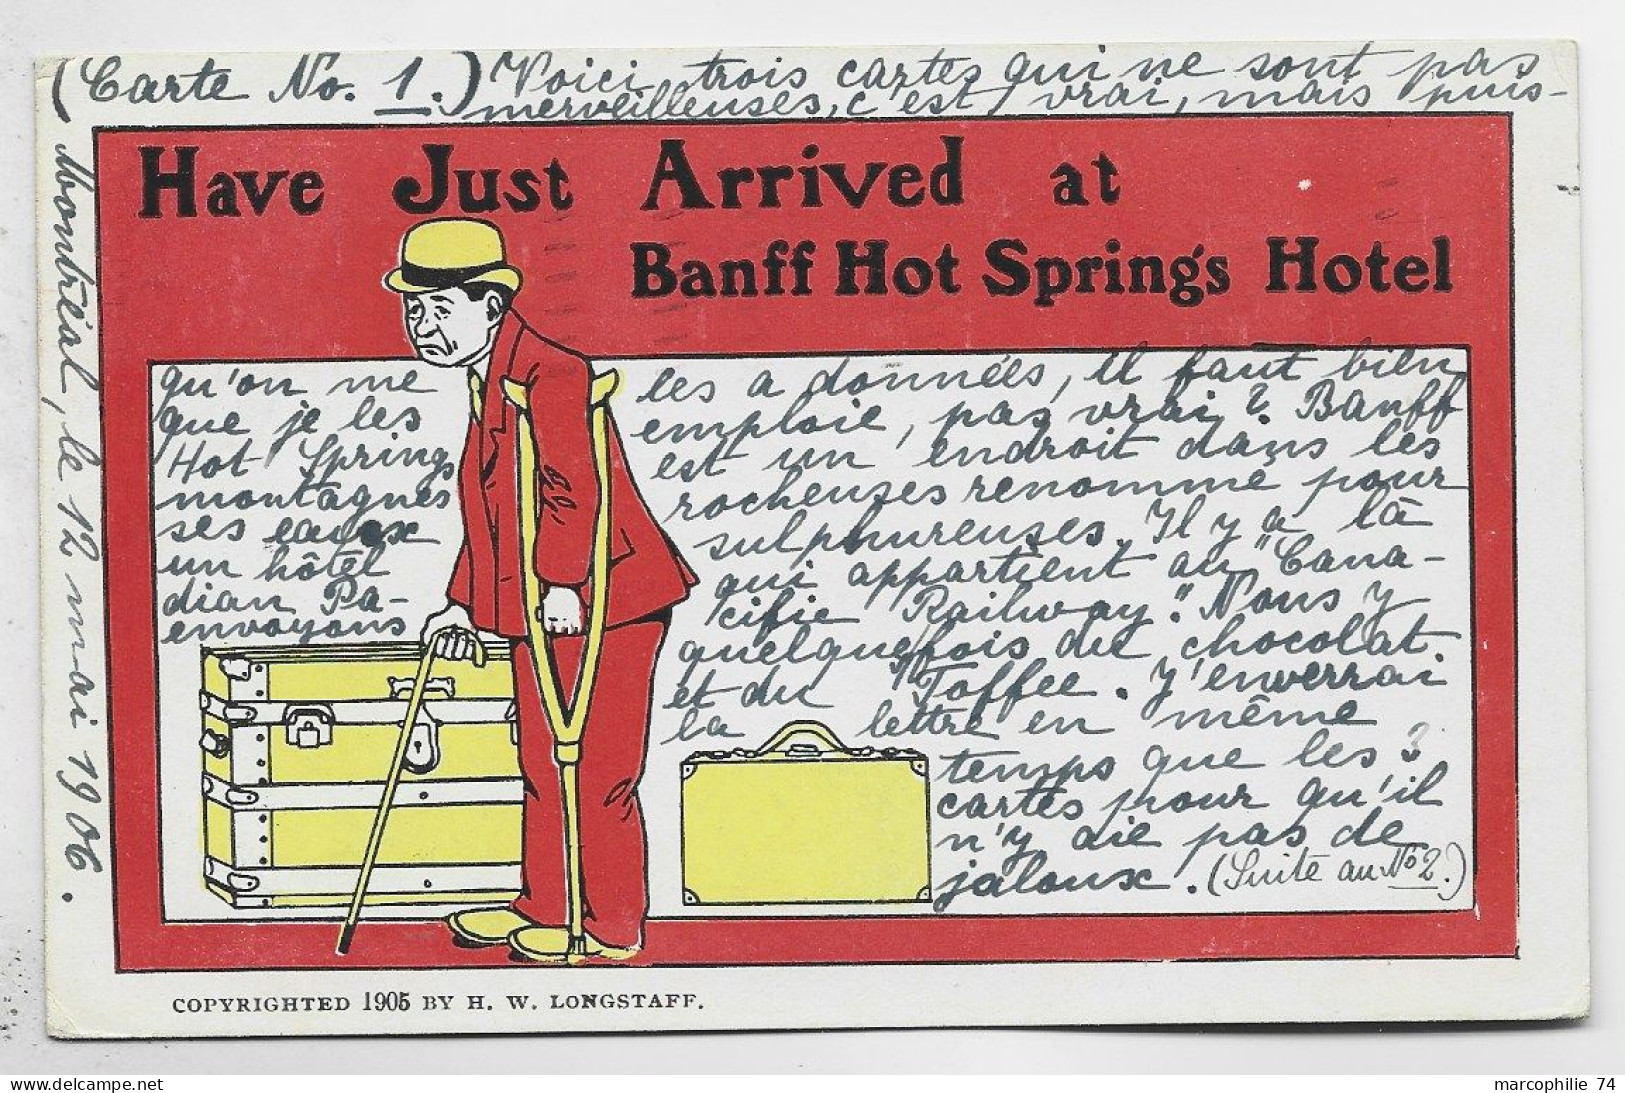 (Carte No. 1.) Voici trois cartes qui ne sont pas
merveilleuses, c'est vrai, mais puis-
Montréal, le 12 mai 1906.
Have Just Arrived at
Banff Hot Springs Hotel
qu'on me les a données, il faut bien
que je les emploie, pas vrai? Banff
Hot Springs est un endroit dans les
montagnes rocheuses renommé pour
ses eaux sulphureuses. Il y a là
un hôtel qui appartient au "Cana-
dian Pa- cific Railway." Nous y
envoyons quelquefois du chocolat
et du "Toffee. J'enverrai
la lettre en même
temps que les 3
cartes pour qu'il
n'y aie pas de
jaloux. (Suite au No 2.)
COPYRIGHTED 1905 BY H. W. LONGSTAFF.
www.delcampe.net
marcophilie 74